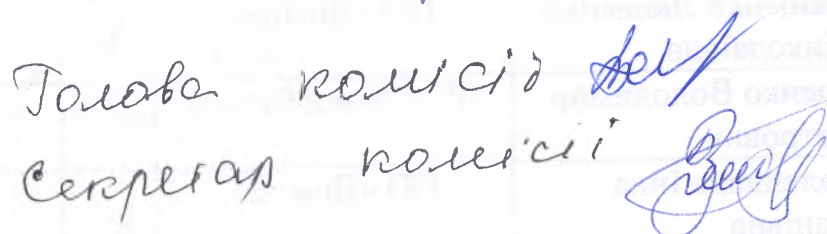 Голова комісії
Секретар комісії